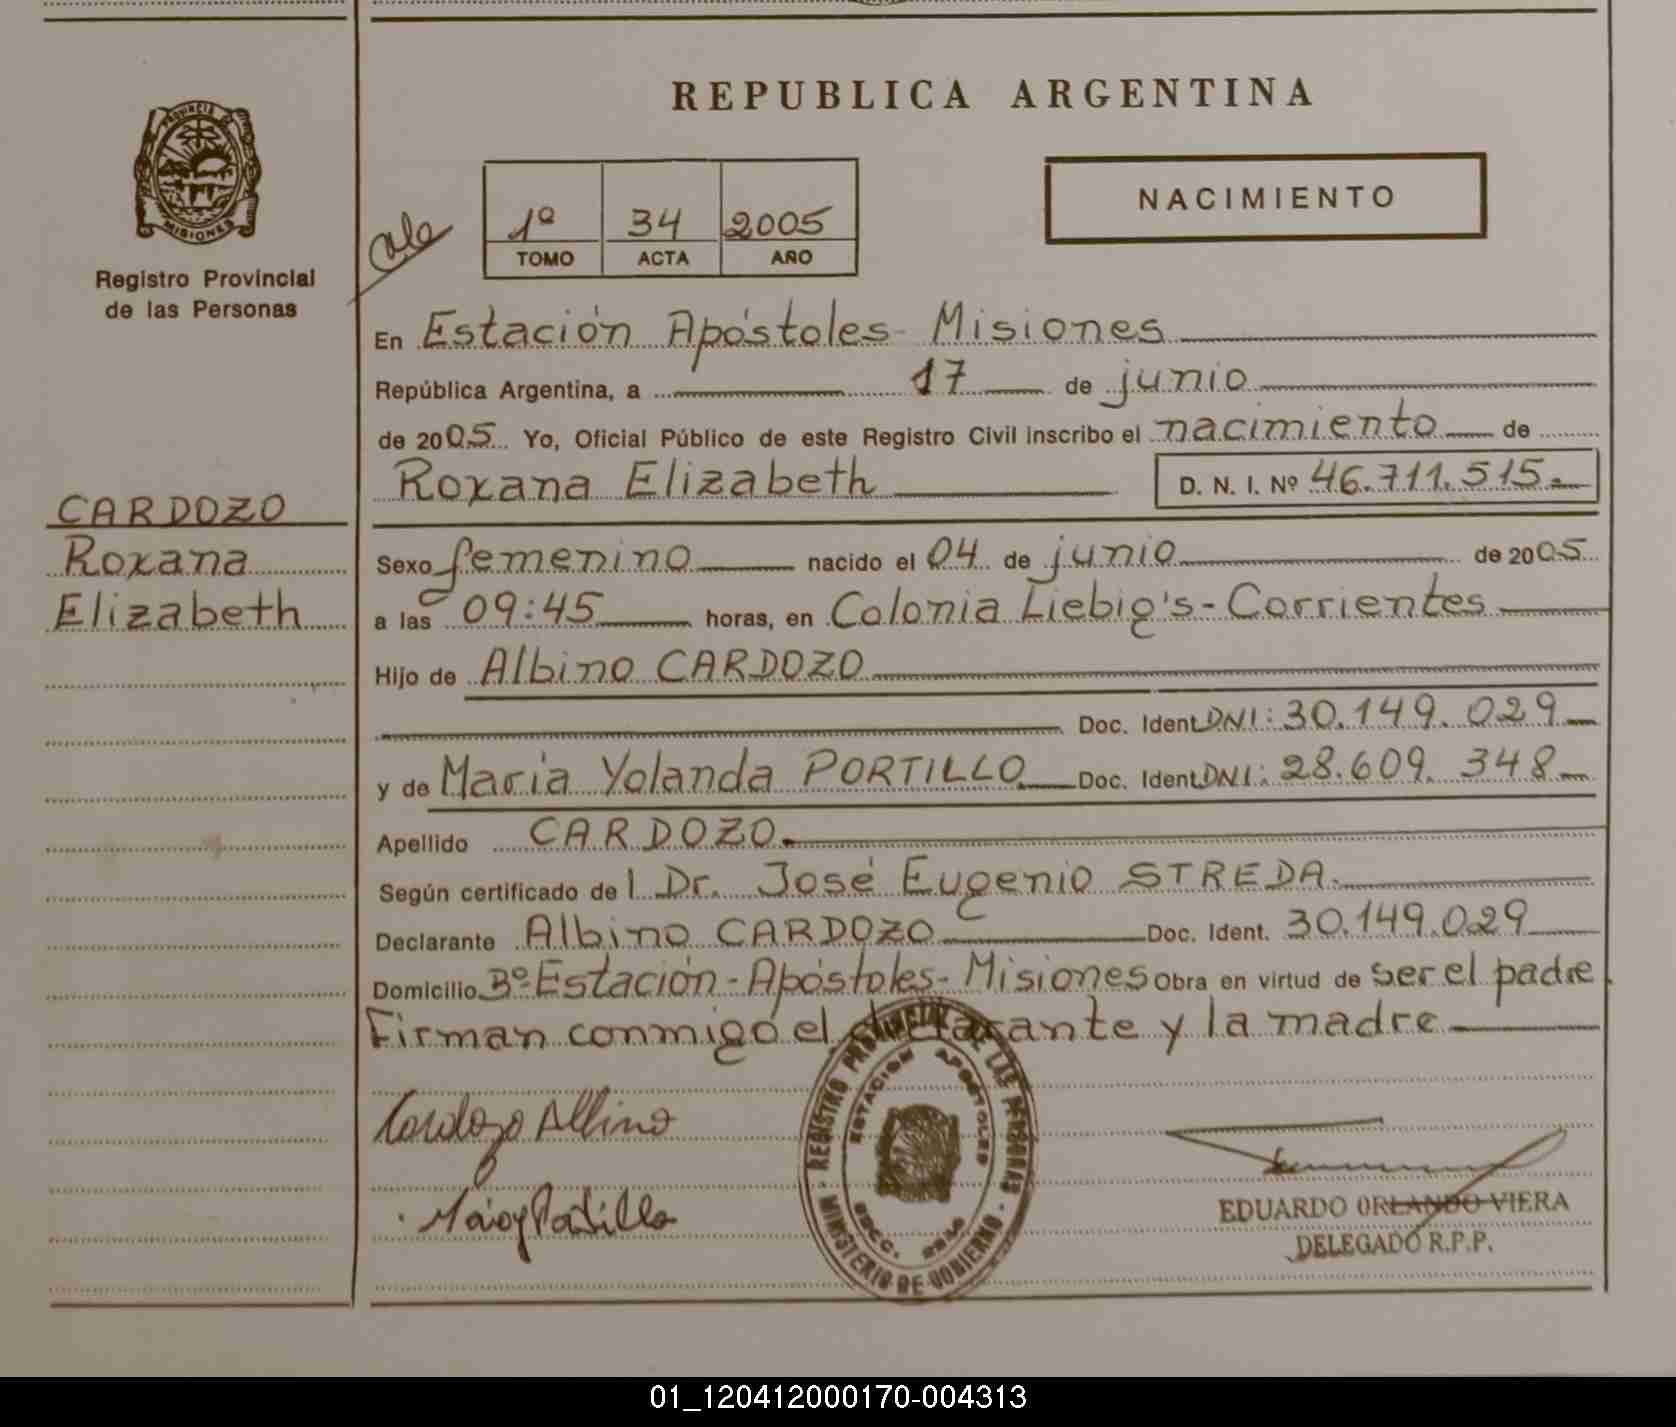 REPUBLICA ARGENTINA
PROVINCIA DE
MISIONES
Registro Provincial
de las Personas
CARDOZO
Roxana
Elizabeth
1º 34 2005
TOMO ACTA AÑO
NACIMIENTO
En Estación Apóstoles - Misiones
República Argentina, a 17 de junio
de 2005 Yo, Oficial Público de este Registro Civil inscribo el nacimiento de
Roxana Elizabeth D. N. I. Nº 46.711.515.
Sexo femenino nacido el 04 de junio de 2005
a las 09:45 horas, en Colonia Liebig's - Corrientes
Hijo de Albino CARDOZO
Doc. Ident. DNI: 30.149.029
y de María Yolanda PORTILLO Doc. Ident. DNI: 28.609.348
Apellido CARDOZO.
Según certificado de l Dr. José Eugenio STREDA.
Declarante Albino CARDOZO Doc. Ident. 30.149.029
Domicilio Bº Estación - Apóstoles - Misiones Obra en virtud de ser el padre
Firman conmigo el declarante y la madre
Cardozo Albino
REGISTRO PROVINCIAL DE LAS PERSONAS
ESTACION APOSTOLES
MINISTERIO DE GOBIERNO
EDUARDO ORLANDO VIERA
DELEGADO R.P.P.
01_120412000170-004313